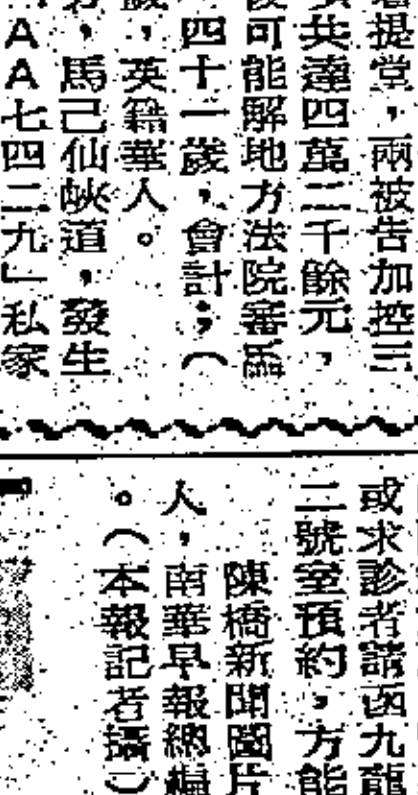 提堂，兩被告加控三
共達四萬二千餘元，
可能解地方法院審
四十一歲，會計；（
，英籍華人。
，馬己仙峽道，發生
AA七四二九」私家
或求診者請函九龍
二號室預約，方能
陳橋新聞圖片
人，南華早報總編
。（本報記者攝）